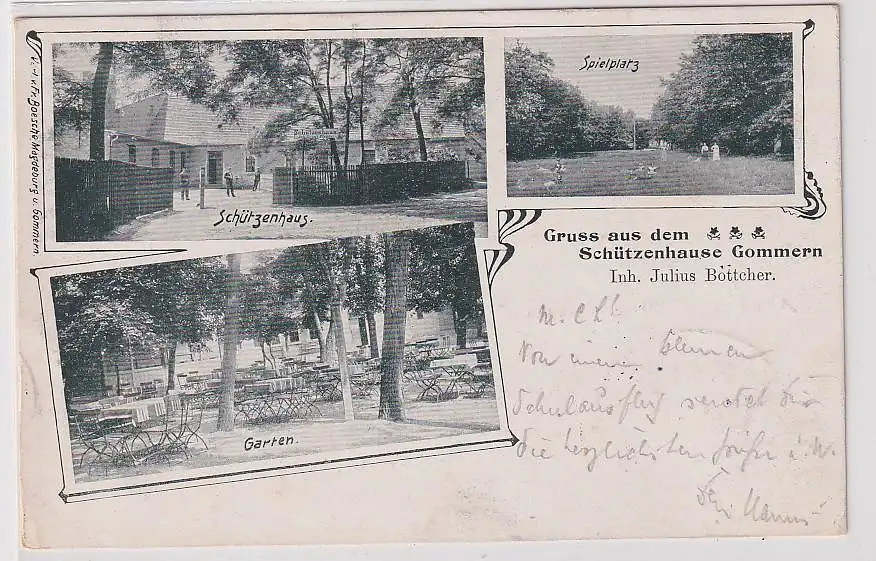 V. u. v. Fr. Boesche Magdeburg u. Gommern
Schützenhaus
Schützenhaus.
Spielplatz
Garten.
Gruss aus dem
Schützenhause Gommern
Inh. Julius Böttcher.
Von einem kleinen
Schulausflug sendet dir
die herzlichsten Grüße u. 
Dein